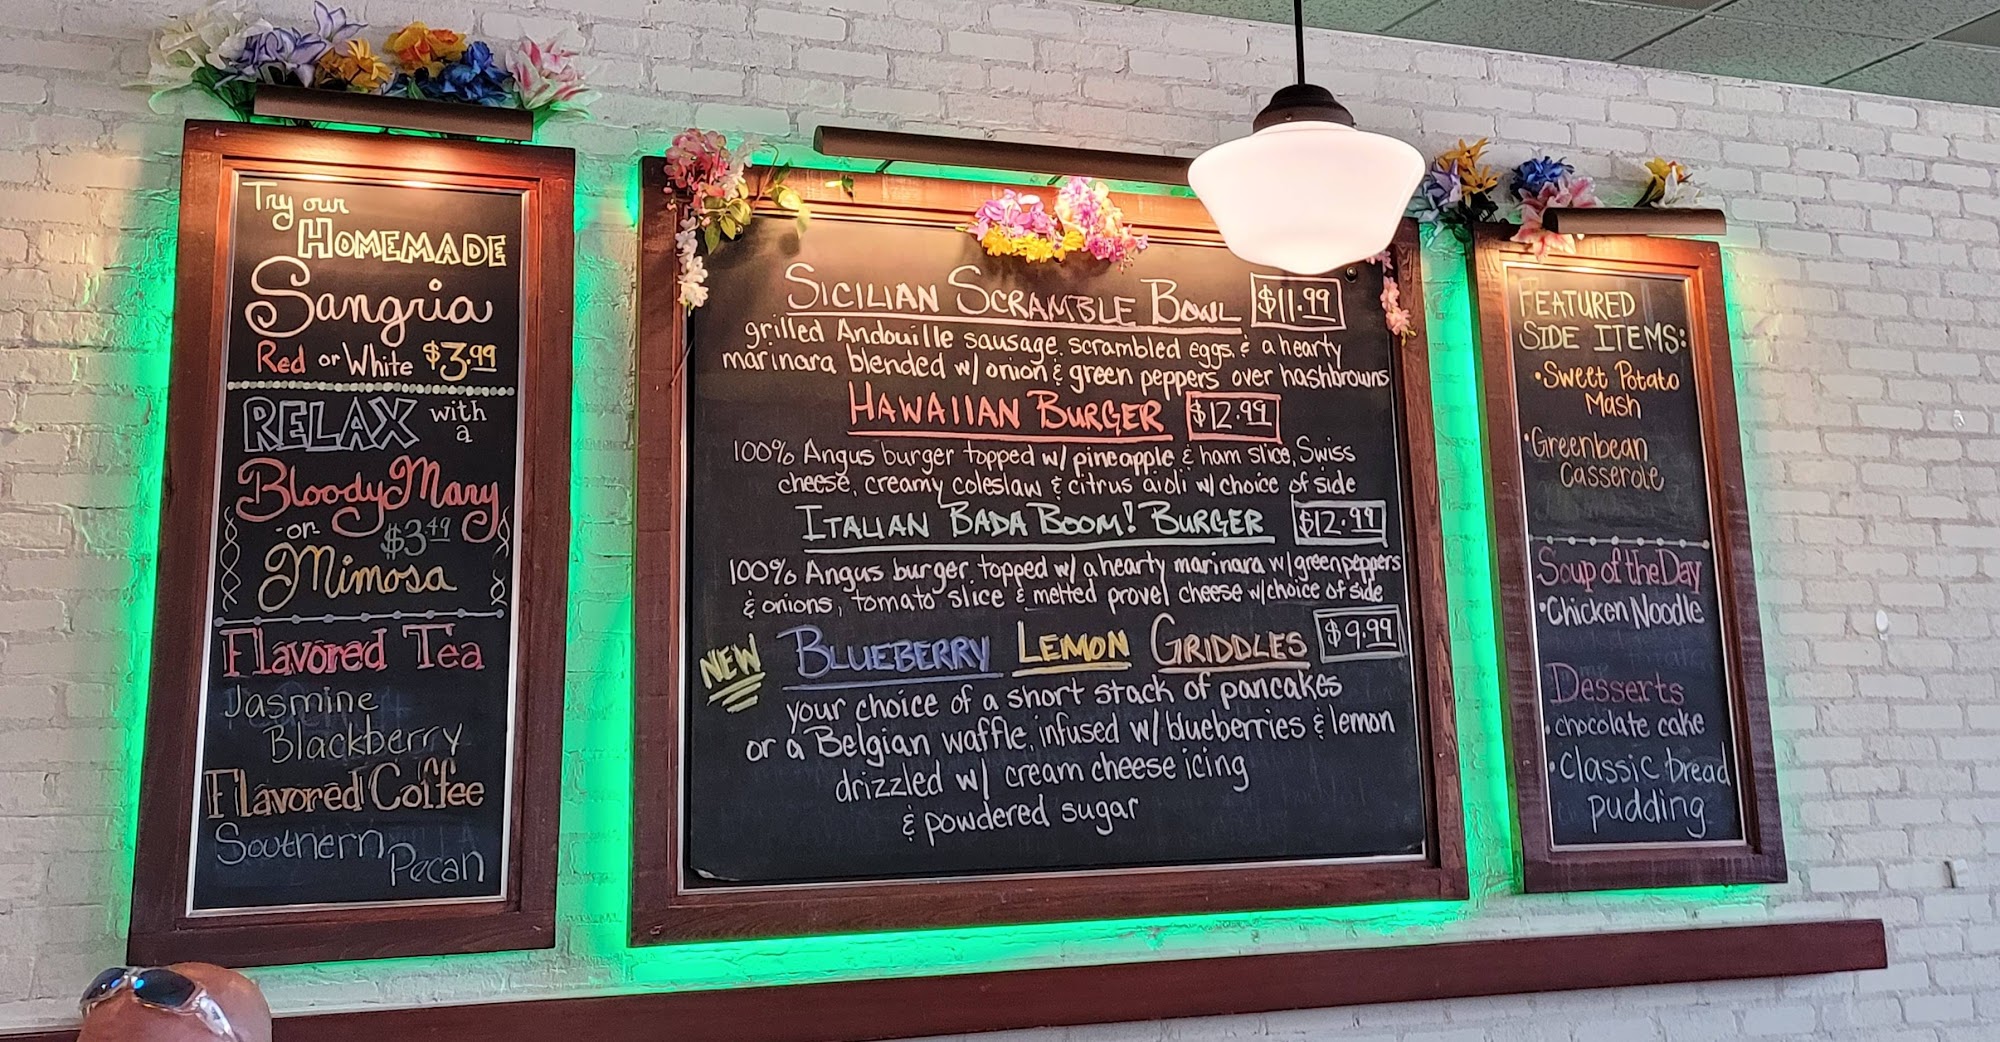 Try our
HOMEMADE
Sangria
Red or White $3.99
RELAX with a
Bloody Mary
-or- $3.49
Mimosa
Flavored Tea
Jasmine
Blackberry
Flavored Coffee
Southern
Pecan
SICILIAN SCRAMBLE BOWL $11.99
grilled Andouille sausage, scrambled eggs, & a hearty
marinara blended w/ onion & green peppers over hashbrowns
HAWAIIAN BURGER $12.99
100% Angus burger topped w/ pineapple & ham slice, Swiss
cheese, creamy coleslaw & citrus aioli w/ choice of side
ITALIAN BADA BOOM! BURGER $12.99
100% Angus burger, topped w/ a hearty marinara w/ green peppers
& onions, tomato slice & melted provel cheese w/ choice of side
NEW BLUEBERRY LEMON GRIDDLES $9.99
your choice of a short stack of pancakes
or a Belgian waffle, infused w/ blueberries & lemon
drizzled w/ cream cheese icing
& powdered sugar
FEATURED
SIDE ITEMS:
•Sweet Potato
Mash
•Greenbean
Casserole
Soup of the Day
•Chicken Noodle
Desserts
•chocolate cake
•Classic bread
pudding